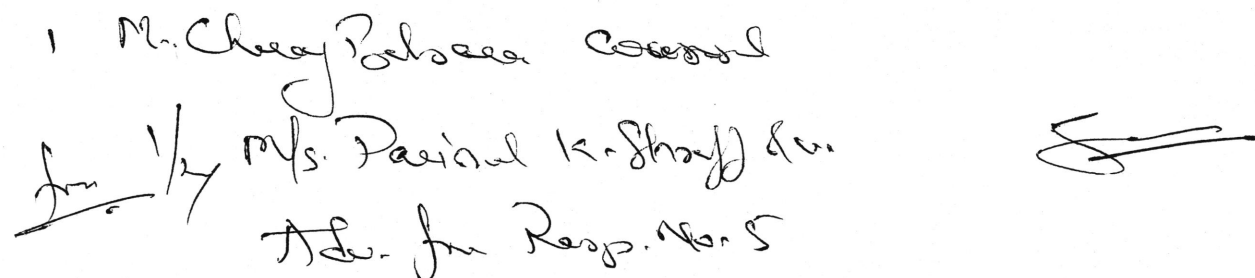 1 Mr. Chirag Balsara Counsel
for i/by M/s. Parimal K. Shroff & Co.
Adv. for Resp. No. 5